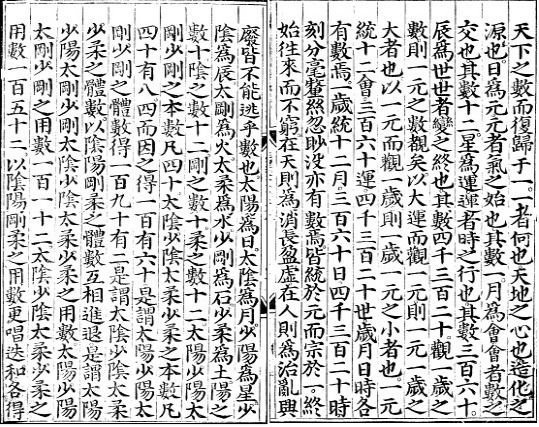 天下之數而復歸于一一者何也天地之心也造化之
源也日爲元元者氣之始也其數一月爲會會者數之
交也其數十二星爲運運者時之行也其數三百六十
辰爲世世者變之終也其數四千三百二十觀一歲之
數則一元之數覩矣以大運而觀一元則一元一歲之
大者也以一元而觀一歲則一歲一元之小者也一元
統十二會三百六十運四千三百二十世歲月日時各
有數焉一歲統十二月三百六十日四千三百二十時
刻分毫釐絲忽眇沒亦有數焉皆統於元而宗於一終
始往來而不窮在天則爲消長盈虛在人則爲治亂興
廢皆不能逃乎數也太陽爲日太陰爲月少陽爲星少
陰爲辰太剛爲火太柔爲水少剛爲石少柔爲土陽之
數十陰之數十二剛之數十柔之數十二太陽少陽太
剛少剛之本數凡四十太陰少陰太柔少柔之本數凡
四十有八四而因之得一百有六十是謂太陽少陽太
剛少剛之體數得一百九十有二是謂太陰少陰太柔
少柔之體數以陰陽剛柔之體數互相進退是謂太陽
少陽太剛少剛太陰少陰太柔少柔之用數太陽少陽
太剛少剛之用數一百一十二太陰少陰太柔少柔之
用數一百五十二以陰陽剛柔之用數更唱迭和各得